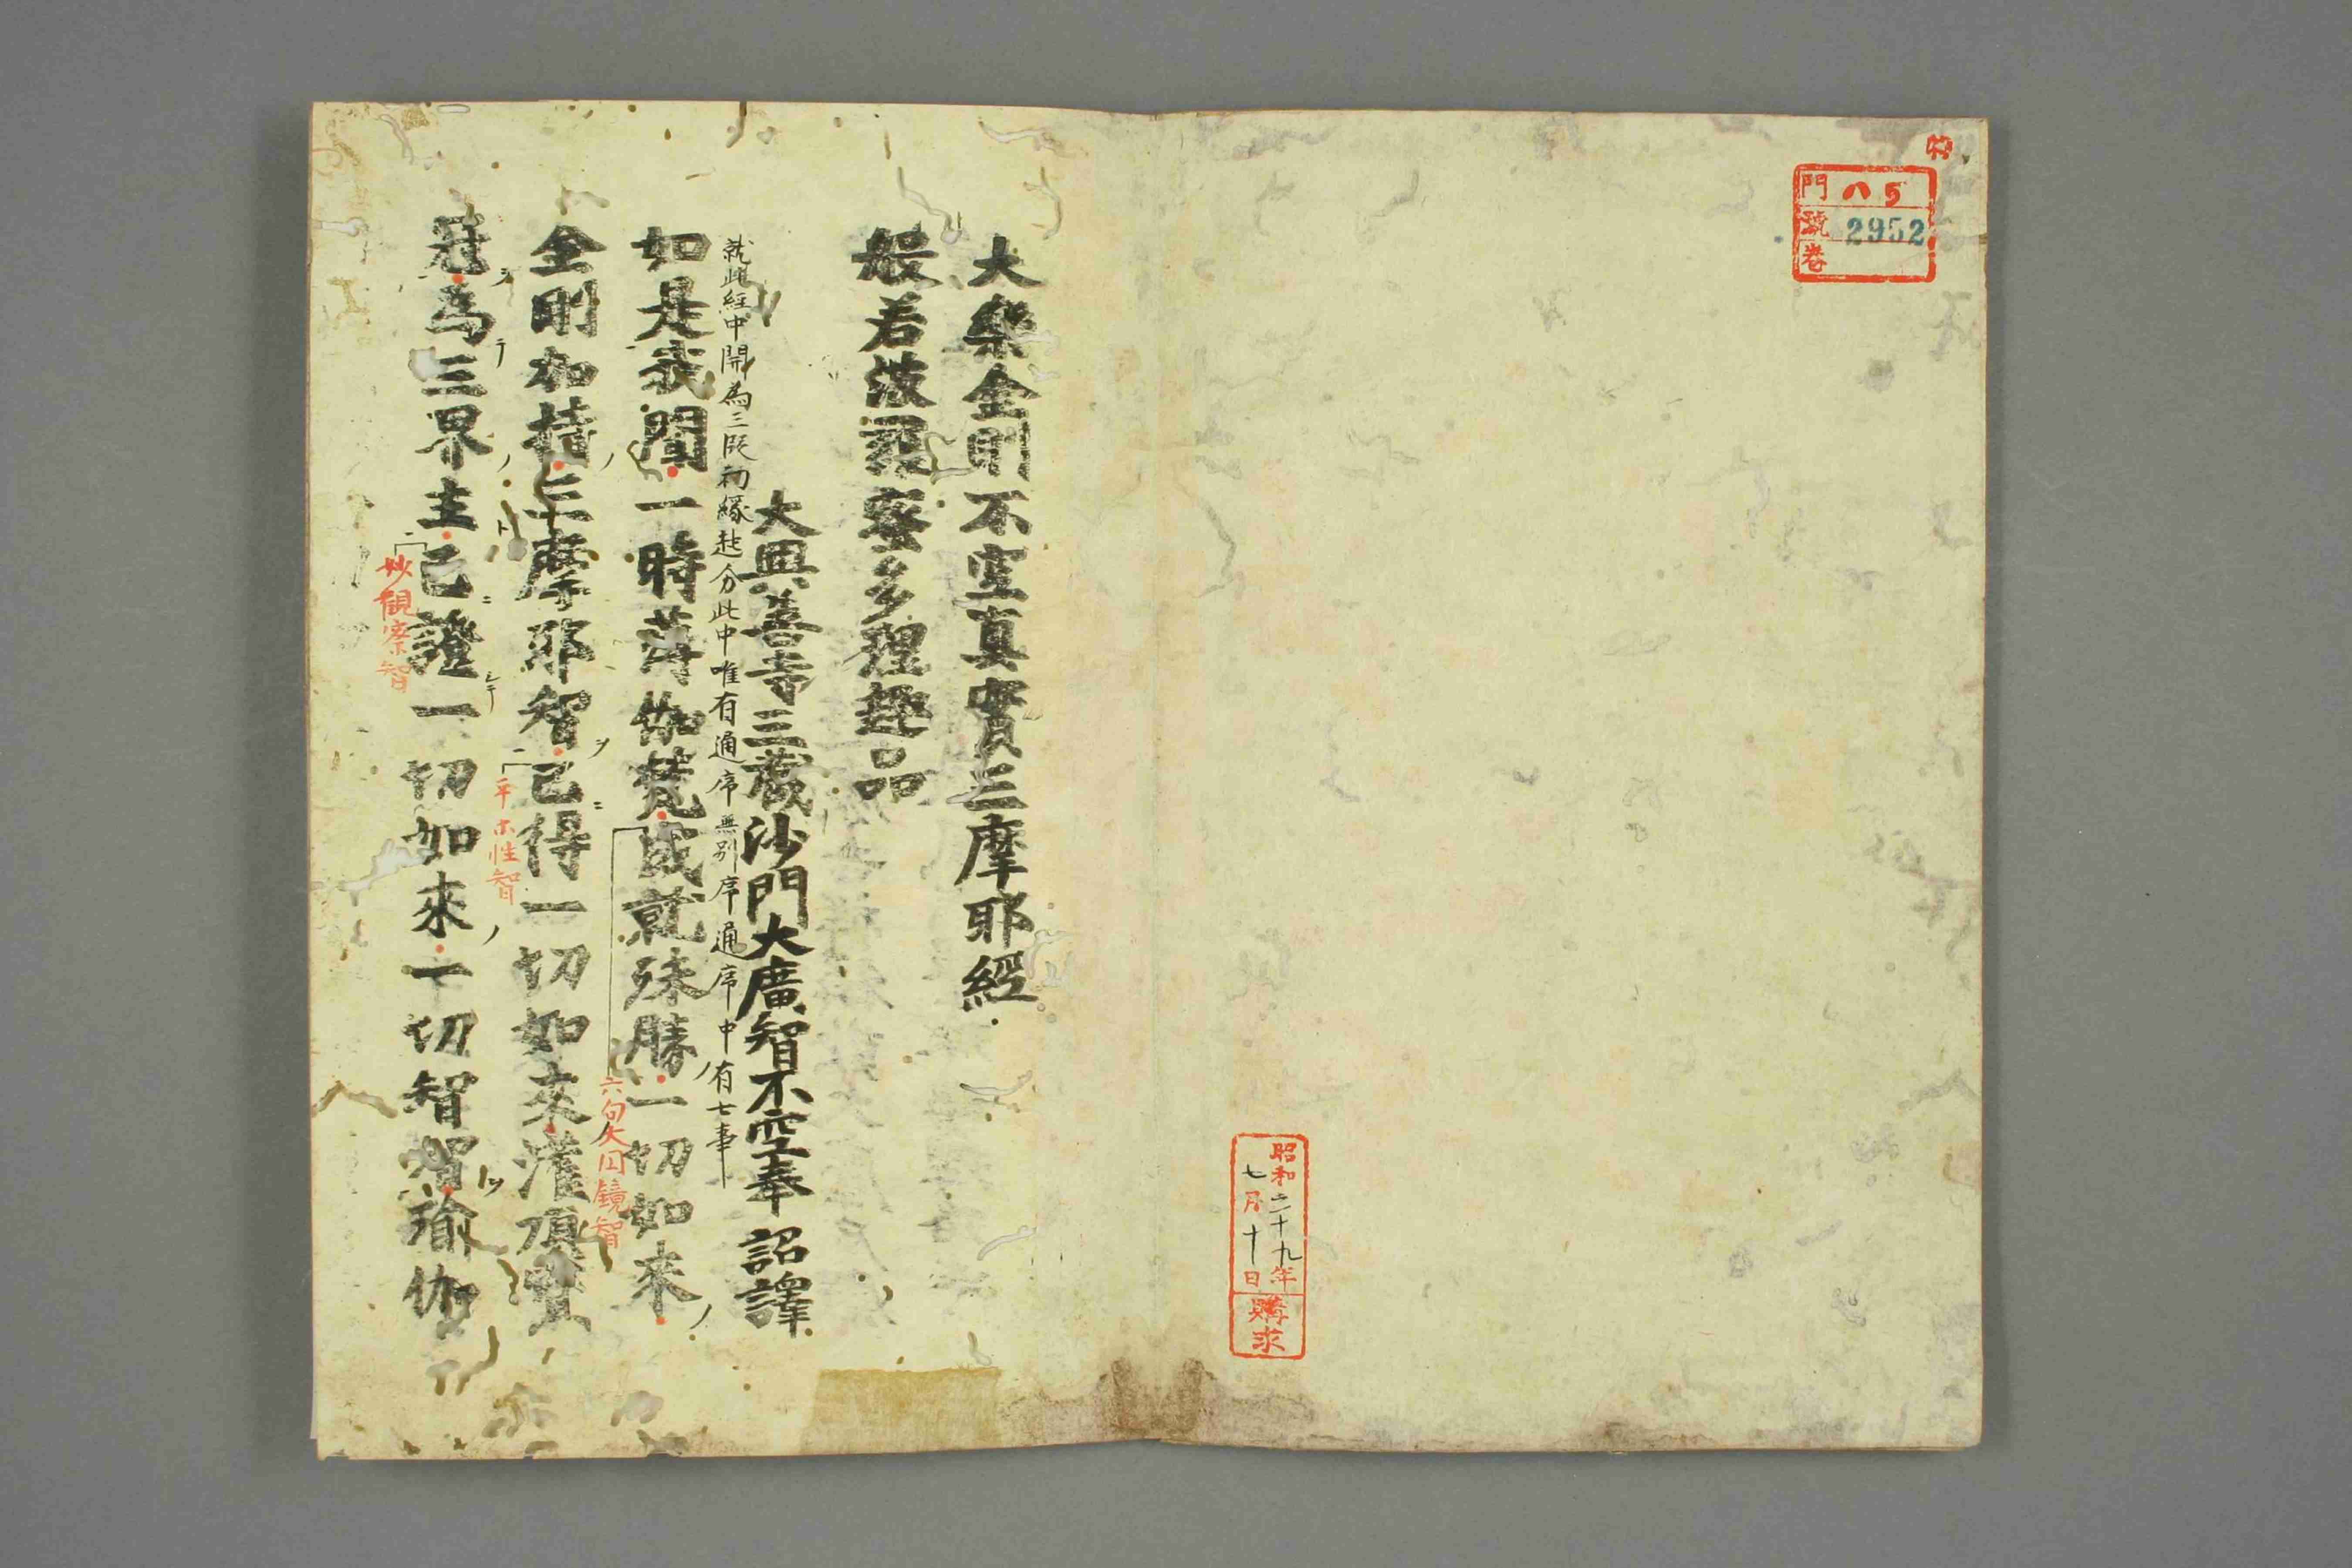 特
門 ハ 5
號 2952
卷
昭和二十九年
七月十日
購求
大樂金剛不空真實三摩耶經
般若波羅蜜多理趣品
大興善寺三藏沙門大廣智不空奉 詔譯
就此經中開為三段初縁起分此中唯有通序無別序通序中有七事
如是我聞一時薄伽梵成就殊勝一切如來
六句大囗鏡智
金剛加持三摩耶智已得一切如來灌頂寶
平等性智
冠為三界主已證一切如來一切智智瑜伽
妙觀察智